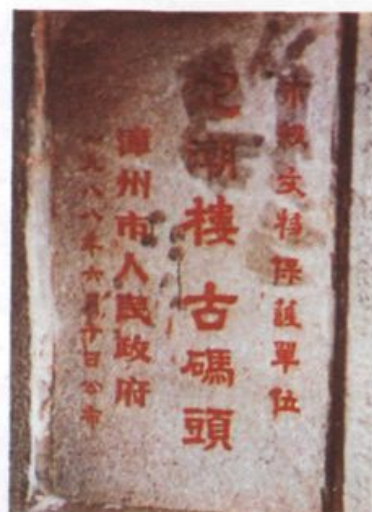 市級文物保護單位
潮樓古碼頭
漳州市人民政府
一九八八年六月十日公布